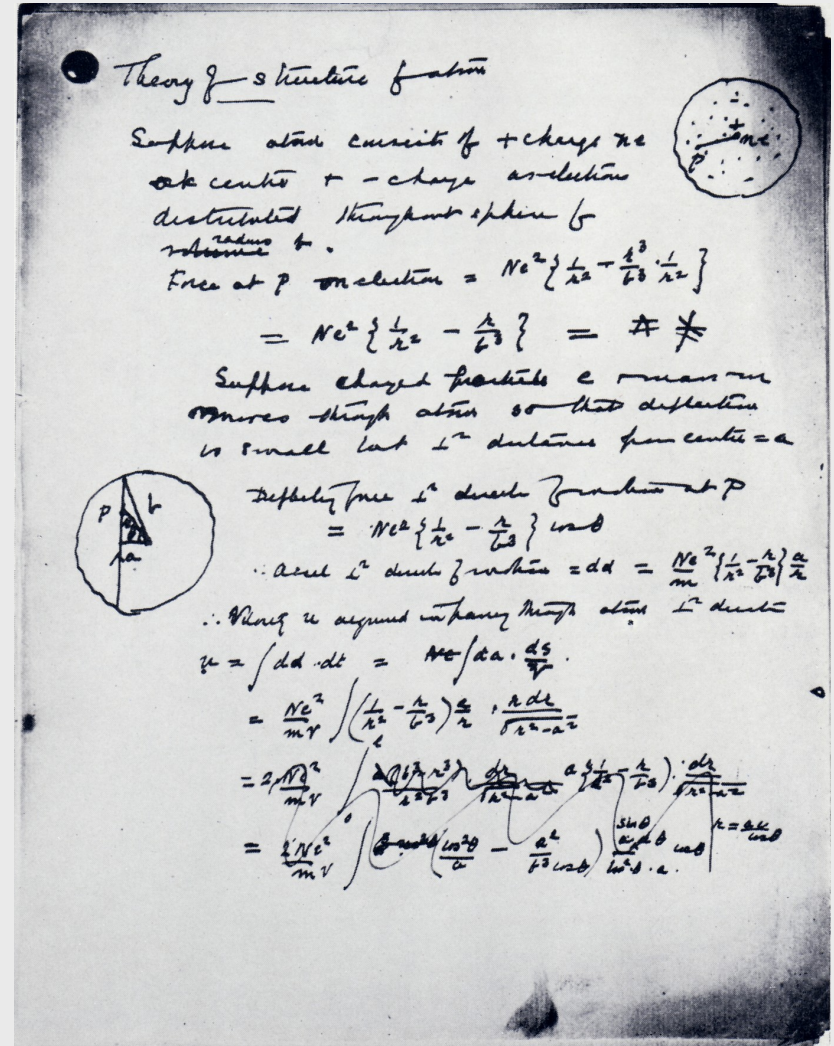 Theory of structure of atom
Suppose atom consists of + charge ne
at centre + - charge as electrons
distributed throughout sphere of
radius b.
+
ne
P
Force at P on electron = Ne² { 1/r² - r³/b³ · 1/r² }
= Ne² { 1/r² - r/b³ } =
Suppose charged particle e mass m
moves through atom so that deflection
is small but ⊥ʳ distance from centre = a
P b
θ
a
Deflecting force ⊥ʳ direction of motion at P
= Ne² { 1/r² - r/b³ } cos θ
∴ accel ⊥ʳ direction of motion = dd = Ne²/m { 1/r² - r/b³ } a/r
∴ Velocity u acquired in passing through atom ⊥ʳ direction
u = ∫ dd · dt = ∫ da · ds/V .
= Ne²/mV ∫ ( 1/r² - r/b³ ) a/r · r dr/√r²-a²
= 2 Ne²/mV ∫ a { 1/r² - r/b³ ) · dr/√r²-a²
= 2Ne²/mV ∫ ( cos²θ/a - a²/b³ cos θ )